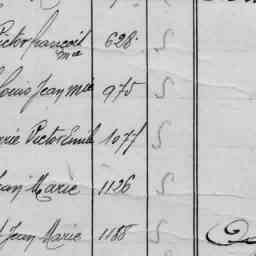 Victor françois Mie 628 S
Louis Jean Mie 975 S
Victor Emile 1077 S
Jean Marie 1126 S
Jean Marie 1188 S